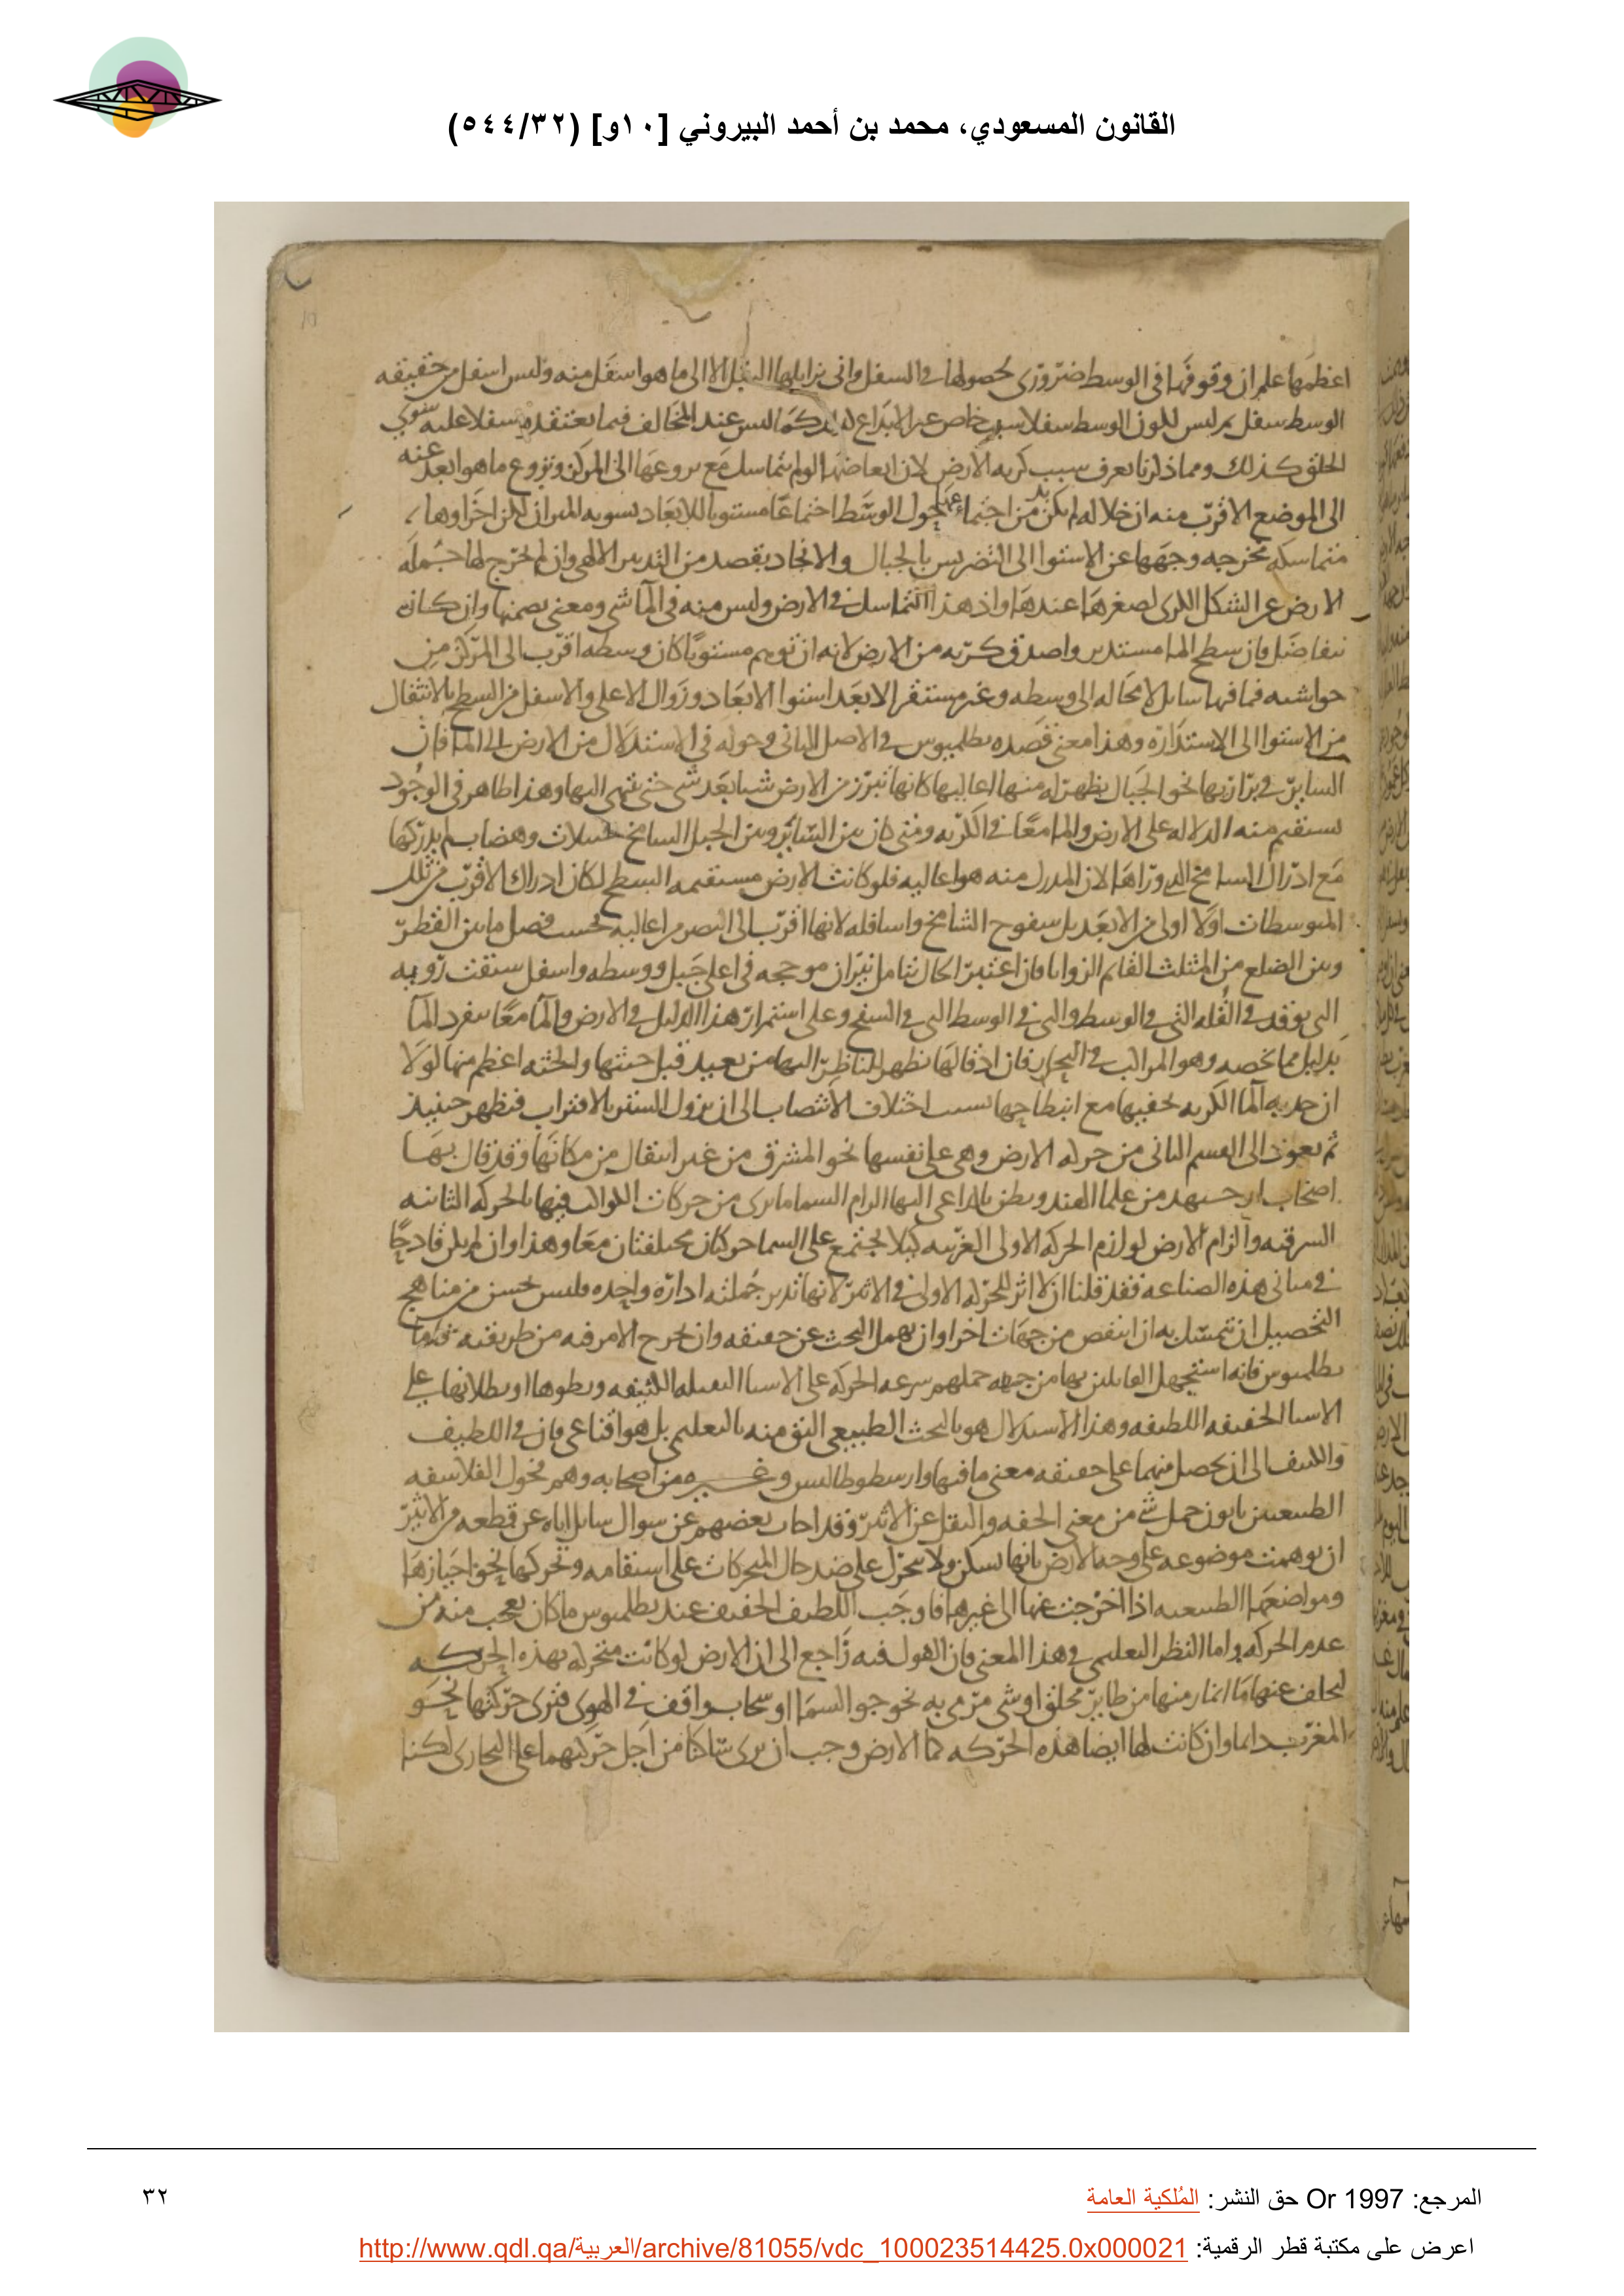 القانون المسعودي، محمد بن أحمد البيروني [١٠و] (٥٤٤/٣٢)
اعظمها علم ان وقوفها فى الوسط ضرورى لحصولها فى السفل وانى يزايلها الثقل الا الى ما هو اسفل منه وليس اسفل من حقيقه
الوسط سفل ثم ليس لكون الوسط سفلا سبب خاص غير الابداع له كما ليس عند المخالف فيما يعتقده سفلا عليه سوى
الخلق كذلك ومما ذكرنا يعرف سبب كريه الارض لان ابعاضها لو لم تتماسك مع نزوعها الى المركز ونزوع ما هو ابعد عنه
الى الموضع الاقرب منه ان خلا له لم يكن بد من اجتماعها حول الوسط اجتماعا مستويا للابعاد تسويه الميزان لكن اجزاوها
متماسكه مخرجه وجهها عن الاستوا الى التضريس بالجبال والانجاد بقصد من التدبير الالهى وان لم تخرج لها جمله
الارض عن الشكل الكرى لصغرها عندها واذ هذا التماسك فى الارض وليس منه فى الما شى ومعنى يضمنها وان كان
يتفاضل فان سطح الما مستدير واصدق كريه من الارض لانه ان توهم مستويا كان وسطه اقرب الى المركز من
حواشيه فما فيها سايل لا محاله الى وسطه وغير مستقر الا بعد استوا الابعاد وزوال الاعلى والاسفل من السطح بالانتقال
من الاستوا الى الاستداره وهذا معنى قصده بطلميوس فى الاصل الثانى وحوله فى الاستدلال من الارض الى الما فان
الساير فى برازيها نحو الجبال يظهر له منها اعاليها كانها تبرز من الارض شيا بعد شى حتى ينتهى اليها وهذا ظاهر فى الوجود
يستقيم منه الدلاله على الارض والما معا فى الكريه ومتى كان بين الساير وبين الجبل الشامخ تلال وهضاب لم يدركها
مع ادراك الشامخ الذى وراها لان المدرك منه هو اعاليه فلو كانت الارض مستقيمه السطح لكان ادراك الاقرب من تلك
المتوسطات اولا اولى من الابعد بل سفوح الشامخ واسافله لانها اقرب الى البصر من اعاليه بحسب فضل ما بين القطر
وبين الضلع من المثلث القايم الزوايا فان اعتبر الحال بتامل نيران موججه فى اعلى جبل ووسطه واسفل سبقت رويه
التى توقد فى القله التى فى الوسط والتى فى الوسط التى فى السفح وعلى استمرار هذا الدليل فى الارض والما معا ينفرد الما
بدليل مما يخصه وهو المراكب فى البحار فان ادقالها تظهر للناظر اليها من بعيد قبل جثتها والجثه اعظم منها لولا
ان حدبه الما الكريه تخفيها مع انبطاحها بسبب اختلاف الانتصاب الى ان يزول الستر بالاقتراب فتظهر حينيذ
ثم نعود الى القسم الثانى من حركه الارض وهى على نفسها نحو المشرق من غير انتقال من مكانها وقد قال بها
اصحاب ارجبهد من علما الهند ويظن بالداعى اليها الزام السما ما يرى من حركات الكواكب فيها بالحركه الثانيه
الشرقيه والزام الارض لوازم الحركه الاولى الغربيه كيلا يجتمع على السما حركتان مختلفتان معا وهذا وان لم يكن قادحا
فى مبانى هذه الصناعه فقد قلنا ان لا اثر للحركه الاولى فى الاثير لانها تدير جملته اداره واحده فليس بحسن من مناهج
التحصيل ان يتمسك به ان انتقض من جهات اخر او ان يهمل البحث عن حقيقه وان يخرج الامر فيه من طريقته فاما
بطلميوس فانه استجهل القايلين بها من جهه حملهم سرعه الحركه على الاشيا الثقيله الكثيفه وبطوها او بطلانها على
الاشيا الخفيفه اللطيفه وهذا الاستدلال هو بالبحث الطبيعى اليق منه بالتعليمى بل هو اقناعى فان فى اللطيف
والكثيف الى ان يحصل منهما على حقيقه معنى ما فيها وارسطوطاليس وغيره من اصحابه وهم فحول الفلاسفه
الطبيعيين يابون حمل شى من معنى الخفه والثقل عن الاثير وقد اجاب بعضهم عن سوال سايل اياه عن قطعه من الاثير
ان توهمت موضوعه على وجه الارض بانها تسكن ولا تتحرك على ضد حال المتحركات على استقامه وتحركها نحو احيازها
ومواضعها الطبيعيه اذا اخرجت عنها الى غيرها فاوجب اللطيف الخفيف عند بطلميوس ما كان يعجب منه من
عدم الحركه واما النظر التعليمى فى هذا المعنى فان القول فيه راجع الى ان الارض لو كانت متحركه بهذه الحركه
لتخلف عنها ما انماز منها من طاير محلق او شى مرمى به نحو جو السما او سحاب واقف فى الهوى فترى حركتها نحو
المغرب دايما وان كانت لها ايضا هذه الحركه كما الارض وجب ان يرى ساكنا من اجل حركتيهما على التجارى لكنا
المرجع: Or 1997 حق النشر: المُلكية العامة
٣٢
اعرض على مكتبة قطر الرقمية: http://www.qdl.qa/العربية/archive/81055/vdc_100023514425.0x000021